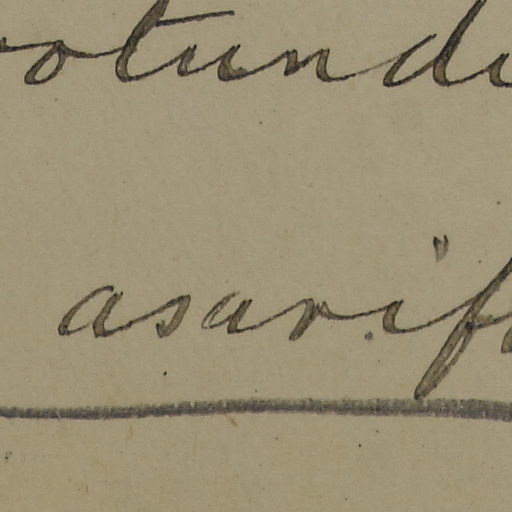 rotundi
asarif